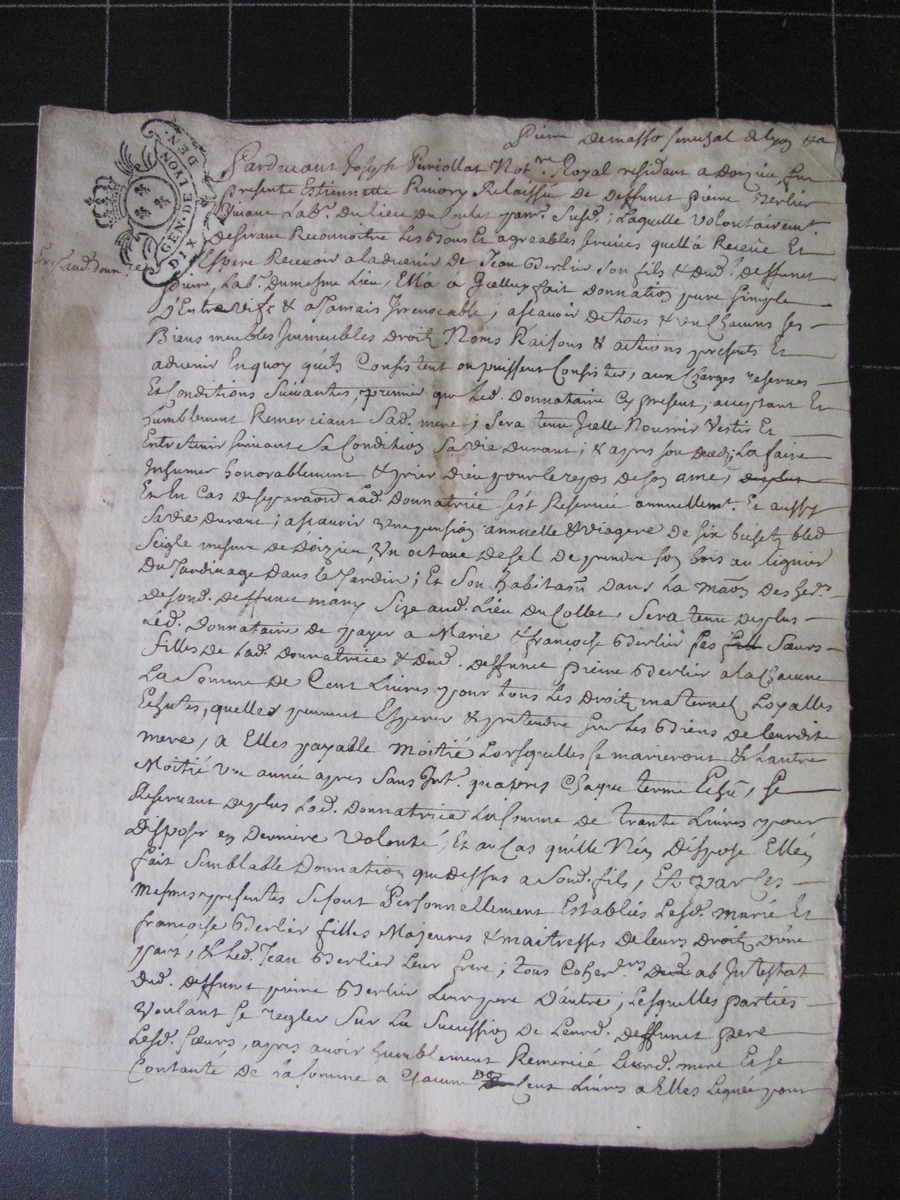 GEN. DE LYON
DIX DEN.
Pierre Demasso senechal de Lyon
Pardevant Joseph Not.re Royal residant a Doizieu, fut
presente Estiennette Relaissée de Deffunt pierre Berlier
Vivant Lab.r Du lieu du Collet parr. Susd.; Laquelle Volontairemt
Desirant Reconnoitre Les Bons Et agreables services quell'a Receüe Et
Espere Recevoir a ladvenir de Jean Berlier Son fils & dud.t deffunt
pierre, Lab.r Dumesme Lieu, Ella à fait Donnation pure simple
D'Entre vifs & a Jamais Irrevocable, ascavoir De tous & un Chacuns ses
Biens meubles Immeubles Droit Noms Raisons & actions presents Et
advenir En quoy quils Consistent ou puissent Consister, aux Charges reserves
Et Conditions Suivantes, premier que Led. Donnataire Cy present, acceptant Et
humblement Remerciant Sad. mere; Sera tenu Icelle Nourrir Vestir Et
Entretenir suivant Sa Condition Sa vie Durant; & apres son deceds La faire
Inhumer honorablement & prier Dieu pour le repos de son ame;
Et En Cas de separaon Lad. Donnatrice s'est Reservée annuellemt. Et aussy
Sa vie Durant; ascavoir Une pension annuelle & viagere De Six bichets bled
Seigle mesure de Doizieu, Un octave De sel De prendre son bois au lignier
Du Jardinage Dans le Jardin; Et Son habitaon Dans La maon Des her.
de son d. deffunt mary Size aud. Lieu Du Collet, Sera tenu De plus
Led. Donnataire De payer a Marie & francoise Berlier ses Sœurs
filles de Lad. Donnatrice & Dud. deffunt pierre Berlier a la Chacune
La Somme De Cent Livres pour tous Les Droit maternel Loyalles
Echutes, quelles peuvent Esperer & pretendre sur Les Biens de leurdite
mere, a Elles payable moitié Lorsquelles se marieront & Lautre
Moitié Une année apres Sans Int.t quapres Chaque terme Echu, se
Reservant De plus Lad. Donnatrice La Somme De trante Livres pour
Disposer en Derniere Volonté; Et au Cas quelle N'en Dispose Elle en
fait Semblable Donnation que Dessus a Sond. fils, Et par Ces
Mesmes presentes Se sont Personnellement Establies Lesd. marie Et
francoise Berlier filles Majeures & maitresses De leurs Droit D'une
part, & Led. Jean Berlier Leur frere; tous Coher.rs ab Intestat
Dud. deffunt pierre Berlier Leur pere D'autre; Lesquelles parties
Voulant se regler Sur La Succession De Leurd. deffunt pere
Lesd. sœurs, apres avoir humblement Remercié Leurd. mere Et se
Contanté De la Somme a Chacune Cent Livres a Elles Leguée pour